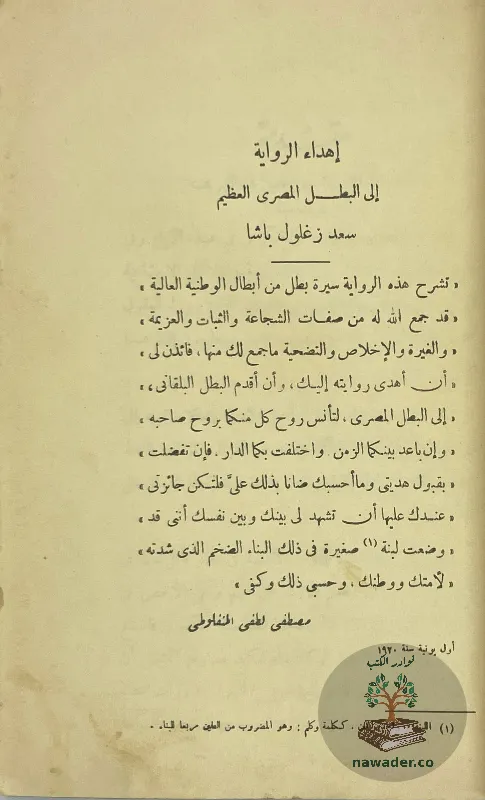 إهداء الرواية
إلى البطـــل المصرى العظيم
سعد زغلول باشا
« تشرح هذه الرواية سيرة بطل من أبطال الوطنية العالية »
« قد جمع الله له من صفات الشجاعة والثبات والعزيمة »
« والغيرة والإخلاص والتضحية ماجمع لك منها، فائذن لى »
« أن أهدى روايته إليك، وأن أقدم البطل البلقانى، »
« إلى البطل المصرى، لتأنس روح كل منكما بروح صاحبه »
« وإن باعد بينكما الزمن. واختلفت بكما الدار. فإن تفضلت »
« بقبول هديتى وماأحسبك ضانا بذلك علىَّ فلتكن جائزتى »
« عندك عليها أن تشهد لى بينك وبين نفسك أننى قد »
« وضعت لبنة (١) صغيرة فى ذلك البناء الضخم الذى شدته »
« لأمتك ووطنك، وحسبى ذلك وكفى »
مصطفى لطفى المنفلوطى
أول يونية سنة ١٩٢٠
نوادر الكتب
(١) ، ككلمة وكلم : وهو المضروب من الطين مربعا للبناء .
nawader.co